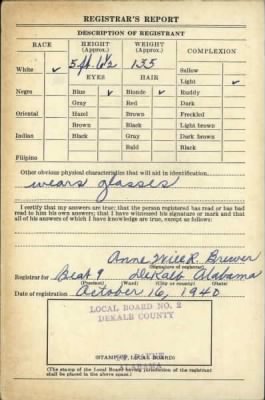 REGISTRAR'S REPORT
DESCRIPTION OF REGISTRANT
RACE HEIGHT (Approx.) WEIGHT (Approx.) COMPLEXION
White ✓ 5 ft. 6½ 135 Sallow
EYES HAIR Light ✓
Negro Blue ✓ Blonde ✓ Ruddy
Gray Red Dark
Oriental Hazel Brown Freckled
Brown Black Light brown
Indian Black Gray Dark brown
Bald Black
Filipino
Other obvious physical characteristics that will aid in identification
wears glasses
I certify that my answers are true; that the person registered has read or has had
read to him his own answers; that I have witnessed his signature or mark and that
all of his answers of which I have knowledge are true, except as follows:
Anne Will R. Brewer
(Signature of registrar)
Registrar for Beat 9 DeKalb Alabama
(Precinct) (Ward) (City or county) (State)
Date of registration October 16, 1940
LOCAL BOARD NO. 2
DEKALB COUNTY
ALABAMA
(STAMP OF LOCAL BOARD)
(The stamp of the Local Board having jurisdiction of the registrant
shall be placed in the above space.)